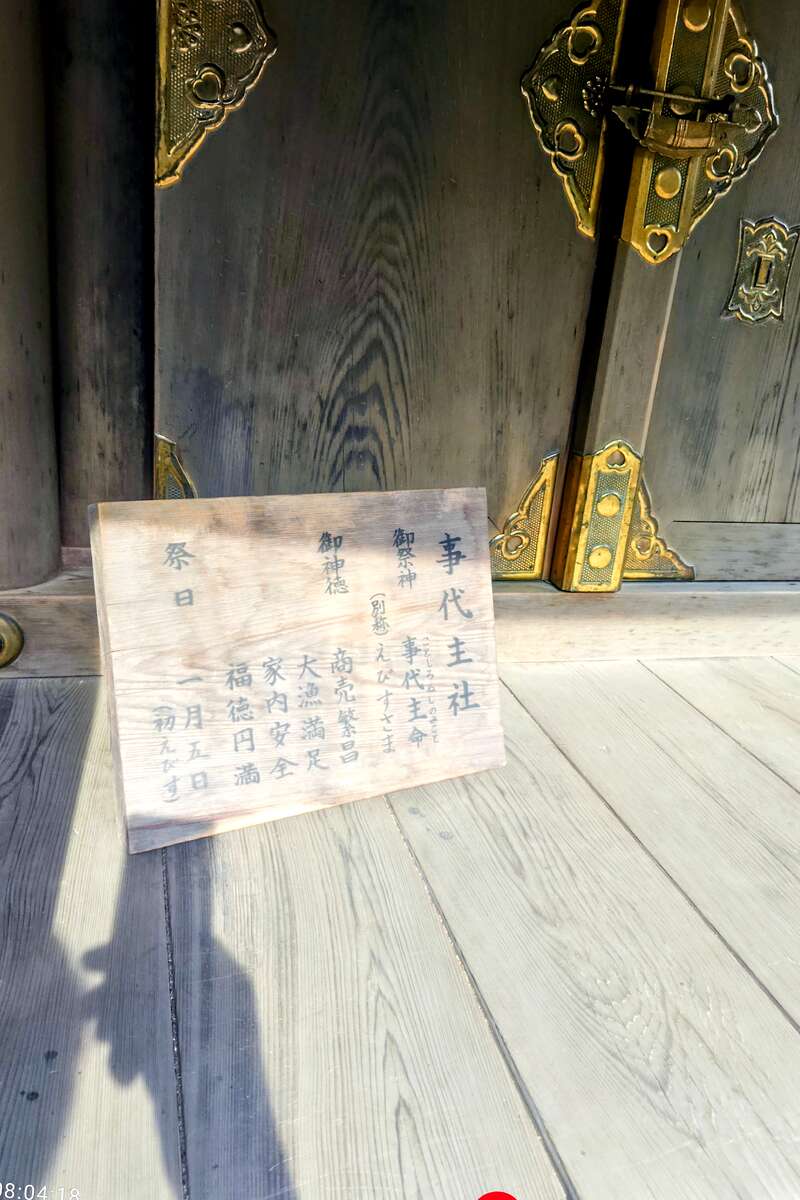 事代主社
御祭神
ことしろぬしのみこと
事代主命
(別称)えびすさま
御神徳
商売繁昌
大漁満足
家内安全
福徳円満
祭日
一月五日
(初えびす)
08:04:18